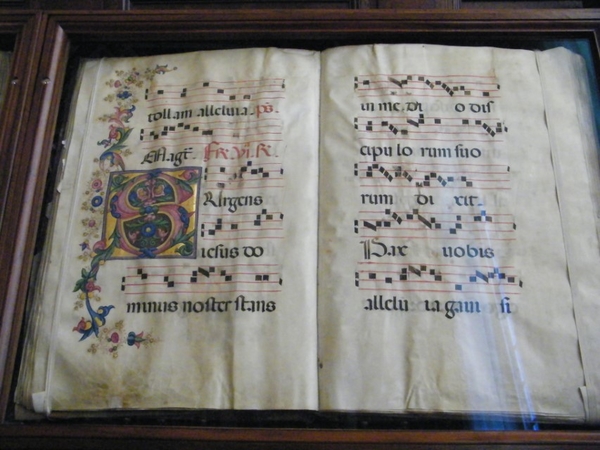 tollam alleluia. ps.
Magt.
S Urgens
iesus do
minus noster stans
in me di o dis
cipu lo rum suo
rum di xit.
Pax uobis
allelu ia gaui si